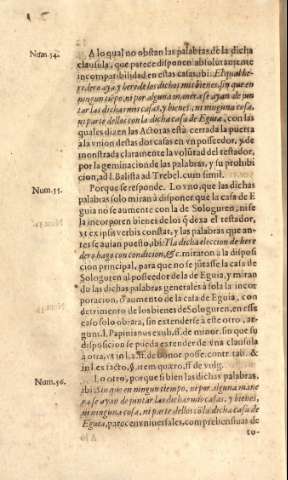 Num. 54.
A lo qual no obstan las palabras de la dicha
clausula, que parece disponen absolutamente
incompatibilidad en estas casas, ibi: El qual he-
redero aya y herede los dichos mis bienes, sin que en
ningun tiempo, ni por alguna manera se ayan de jun
tar las dichas mis casas, y bienes, ni ninguna cosa,
ni parte dellos con la dicha casa de Eguia, con las
quales dizen las Actoras està cerrada la puerta
a la vnion destas dos casas en vn posseedor, y de
monstrada claramente la volũtad del testador,
por la geminacion de las palabras, y su prohibi
cion, ad l. Balista ad Trebel. cum simil.
Num. 55.
Porque se responde. Lo vno, que las dichas
palabras solo miran a disponer, que la casa de E
guia no se aumente con la de Sologuren, ni se
la incorporen bienes de los q̃ dexa el testador,
vt ex ipsis verbis constat, y las palabras que an-
tes se auian puesto, ibi: Y la dicha eleccion de here
dero, haga con condicion, &c. miraron a la disposi
cion principal, para que no se jũtasse la casa de
Sologuren al posseedor de la de Eguia, y miran
do las dichas palabras generales à sola la incor
poracion, ò aumento de la casa de Eguia, con
detrimento de los bienes de Sologuren, en esse
caso solo obrarà, sin extenderse à este otro,
gunt. l. Papinianus exuli, ff. de minor. sin que su
disposicion se pueda extender de vna clausula
a otra, vt in l. 1. ff. de bonor. posse. contr. tab. &
in l. ex facto, §. rem quatro, ff. de vulg.
Num. 56.
Lo otro, porque si bien las dichas palabras,
ibi: Sin que en ningun tiempo, ni por alguna mane
ra se ayan de juntar las dichas mis casas, y bienes,
ni ninguna cosa, ni parte dellos cõ la dicha casa de
Eguia, parecen vniversales, comprehensiuas de
to-